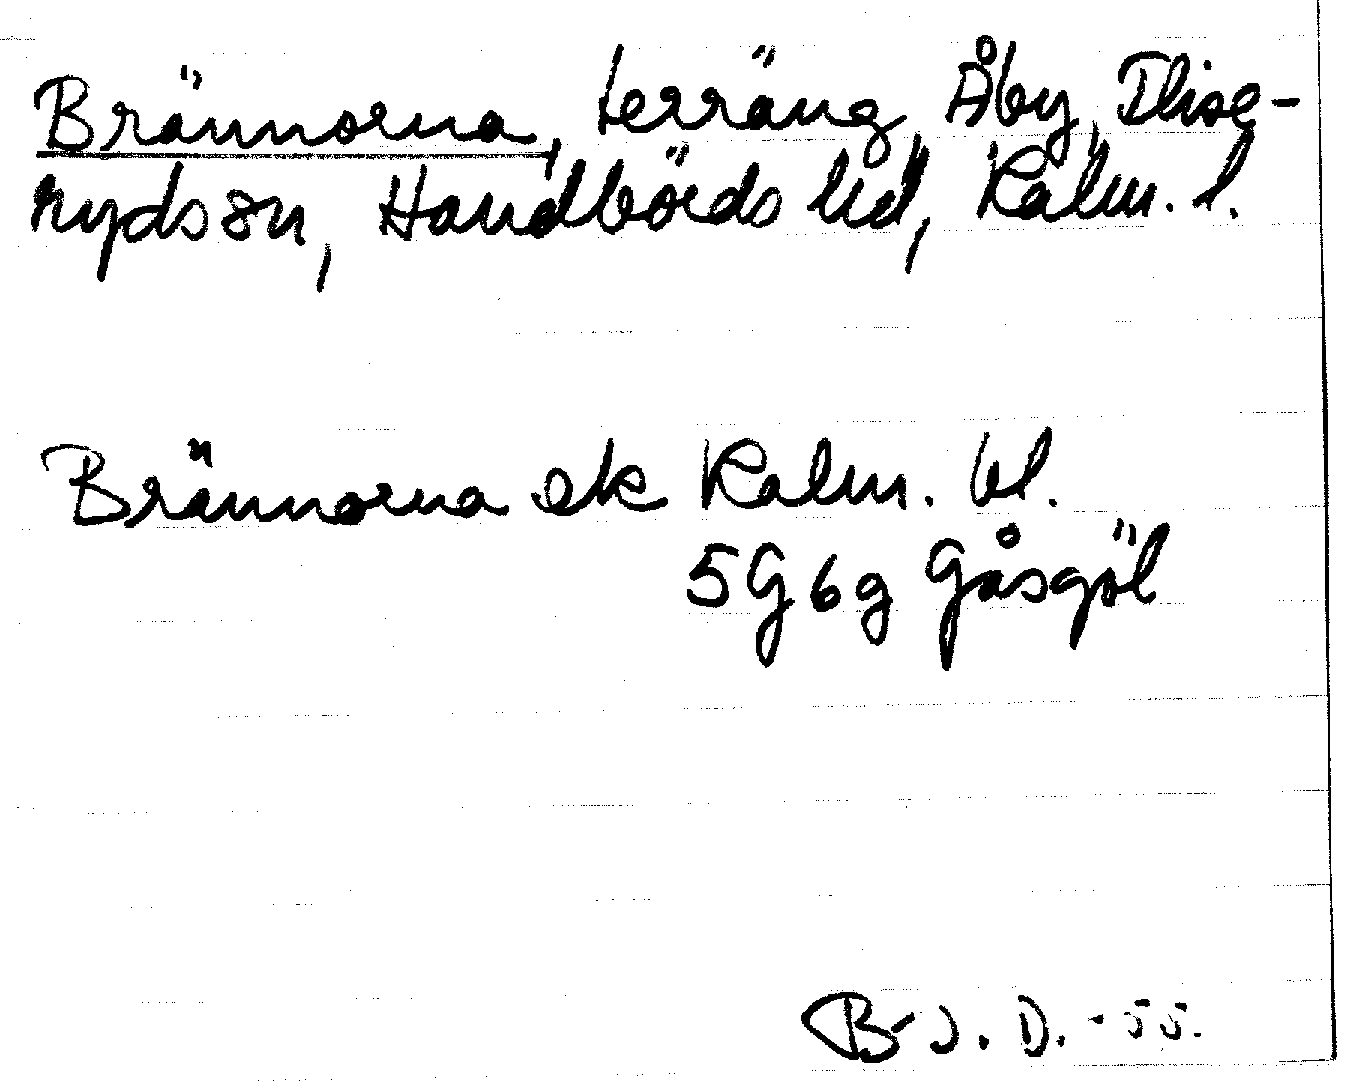 Brännorna, terräng, Åby, Flise-
ryds sn, Handbörds hd, Kalm. l.
Brännorna ek Kalm. bl.
5G6g Gåsgöl
B-J. D. -55.